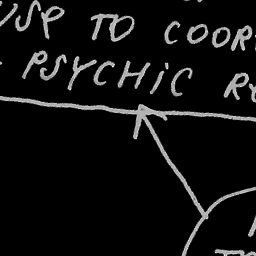 USE TO COOR
PSYCHIC R